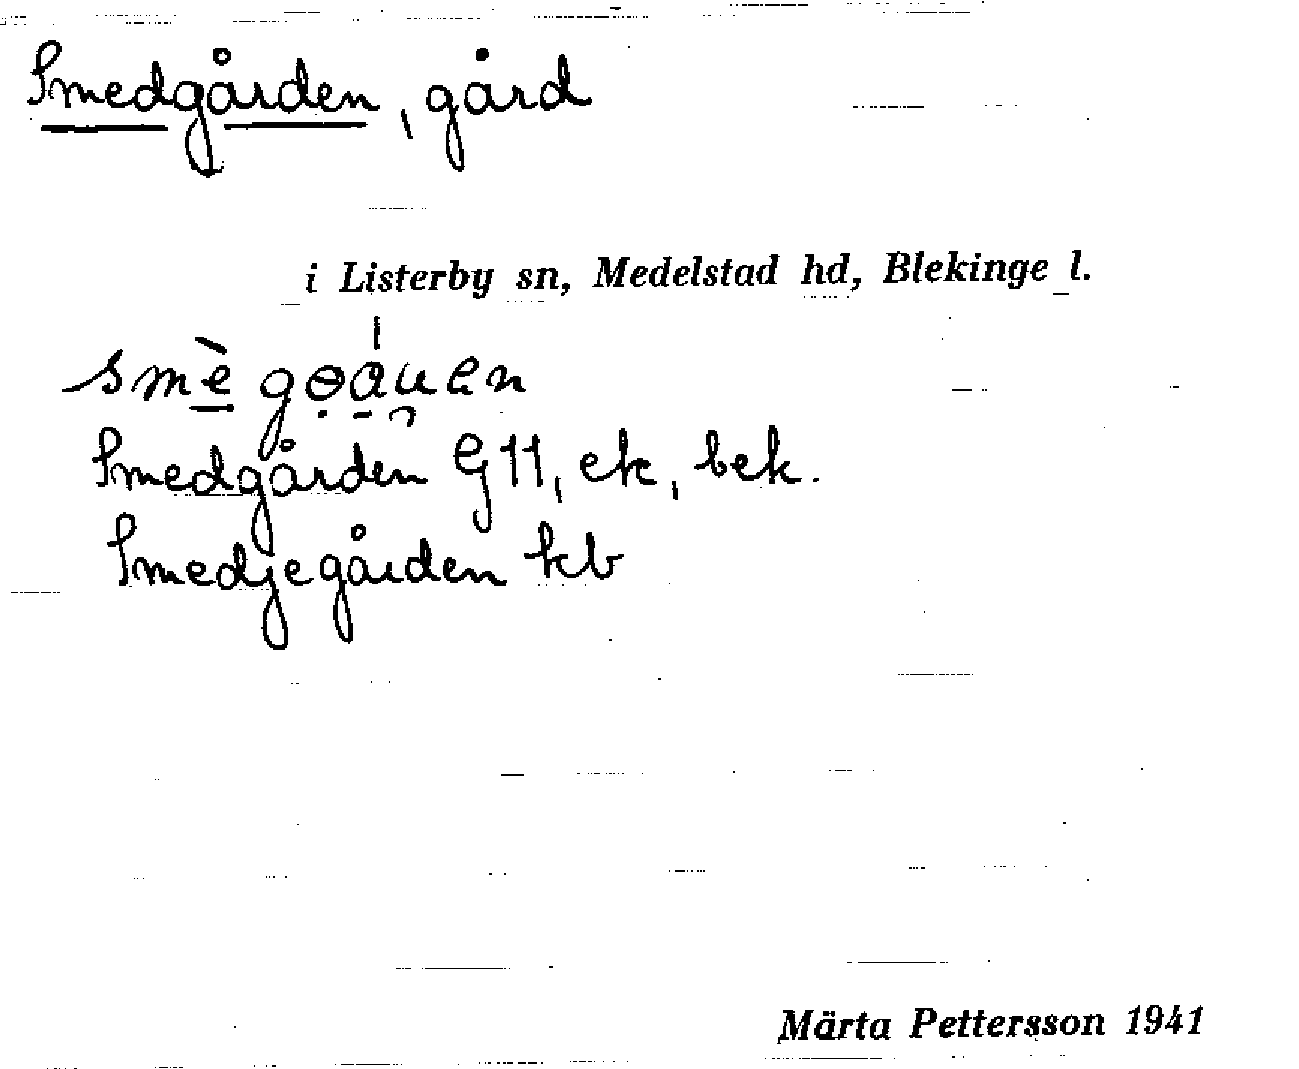 Smedgården, gård
i Listerby sn, Medelstad hd, Blekinge l.
Smedgården G11, ek, bek.
Smedjegården kb
Märta Pettersson 1941